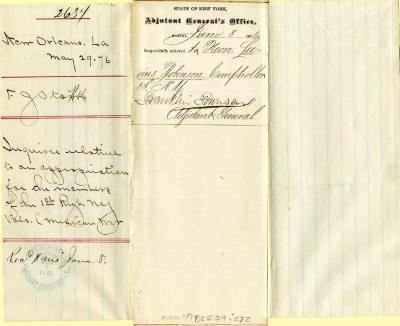 2634
New Orleans. La
May 29. 76
F J
Inquires relative
to an appropriation
for the members
of the 1st Regt. NY
Vols. (Mexican War
Recd June 8.
STATE OF NEW YORK,
Adjutant General's Office,
ALBANY June 8 1876
Respectfully referred to Hon Lu-
cius Robinson Comptroller
of N.Y.
Franklin Townsend
Adjutant General